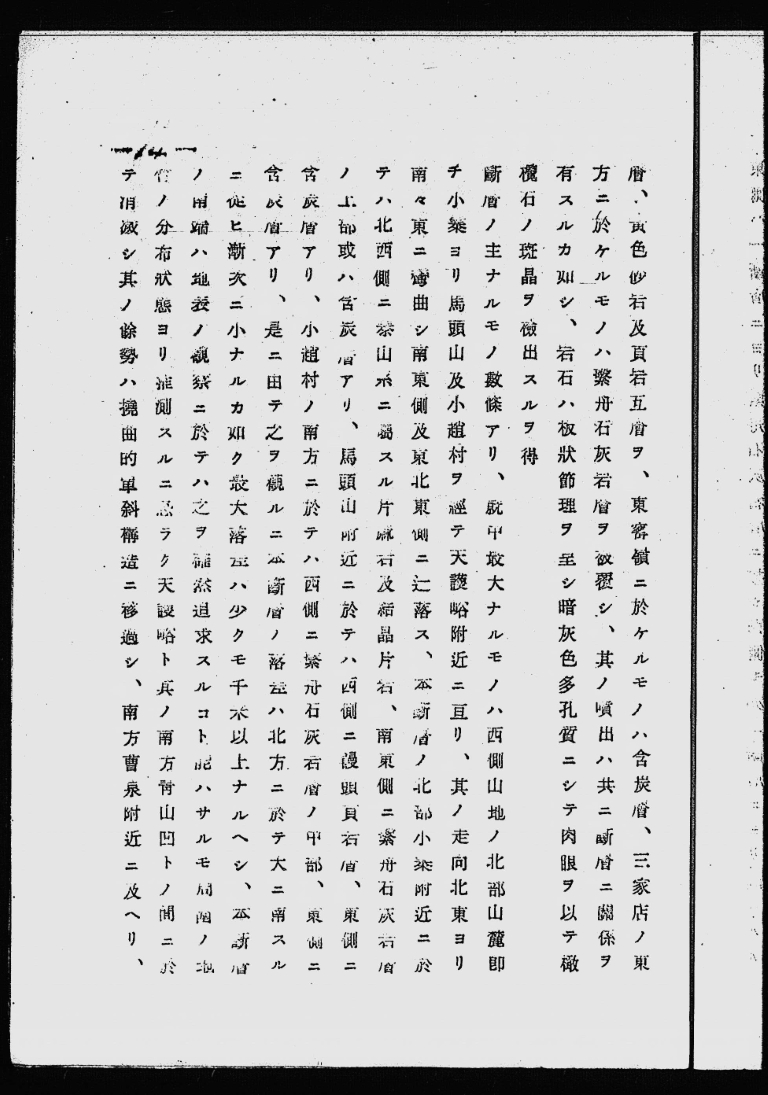 層、黄色砂岩及頁岩互層ヲ、東窰領ニ於ケルモノハ含炭層、三家店ノ東
方ニ於ケルモノハ繋舟石灰岩層ヲ被覆シ、其ノ噴出ハ共ニ斷層ニ關係ヲ
有スルカ如シ、岩石ハ板狀節理ヲ呈シ暗灰色多孔質ニシテ肉眼ヲ以テ橄
欖石ノ斑晶ヲ檢出スルヲ得
斷層ノ主ナルモノ數條アリ、就中最大ナルモノハ西側山地ノ北部山麓卽
チ小梁ヨリ馬頭山及小趙村ヲ經テ天護峪附近ニ亘リ、其ノ走向北東ヨリ
南々東ニ彎曲シ南東側及東北東側ニ辷落ス、本斷層ノ北部小梁附近ニ於
テハ北西側ニ泰山系ニ屬スル片麻岩及結晶片岩、南東側ニ繋舟石灰岩層
ノ上部或ハ含炭層アリ、馬頭山附近ニ於テハ西側ニ饅頭頁岩層、東側ニ
含炭層アリ、小趙村ノ南方ニ於テハ西側ニ繋舟石灰岩層ノ中部、東側ニ
含炭層アリ、是ニ由テ之ヲ觀ルニ本斷層ノ落差ハ北方ニ於テ大ニ南スル
ニ從ヒ漸次ニ小ナルカ如ク最大落差ハ少クモ千米以上ナルヘシ、本斷層
ノ南端ハ地表ノ觀察ニ於テハ之ヲ確然追求スルコト能ハサルモ周圍ノ地
層ノ分布狀態ヨリ推測スルニ恐ラク天護峪ト其ノ南方靑山凹トノ間ニ於
テ消滅シ其ノ餘勢ハ撓曲的單斜構造ニ移過シ、南方曹泉附近ニ及ヘリ、
—14—